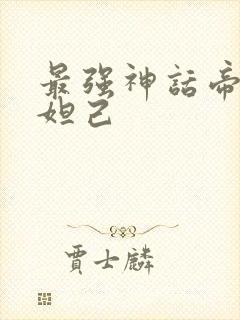 最强神話帝
妲己
賈士麟